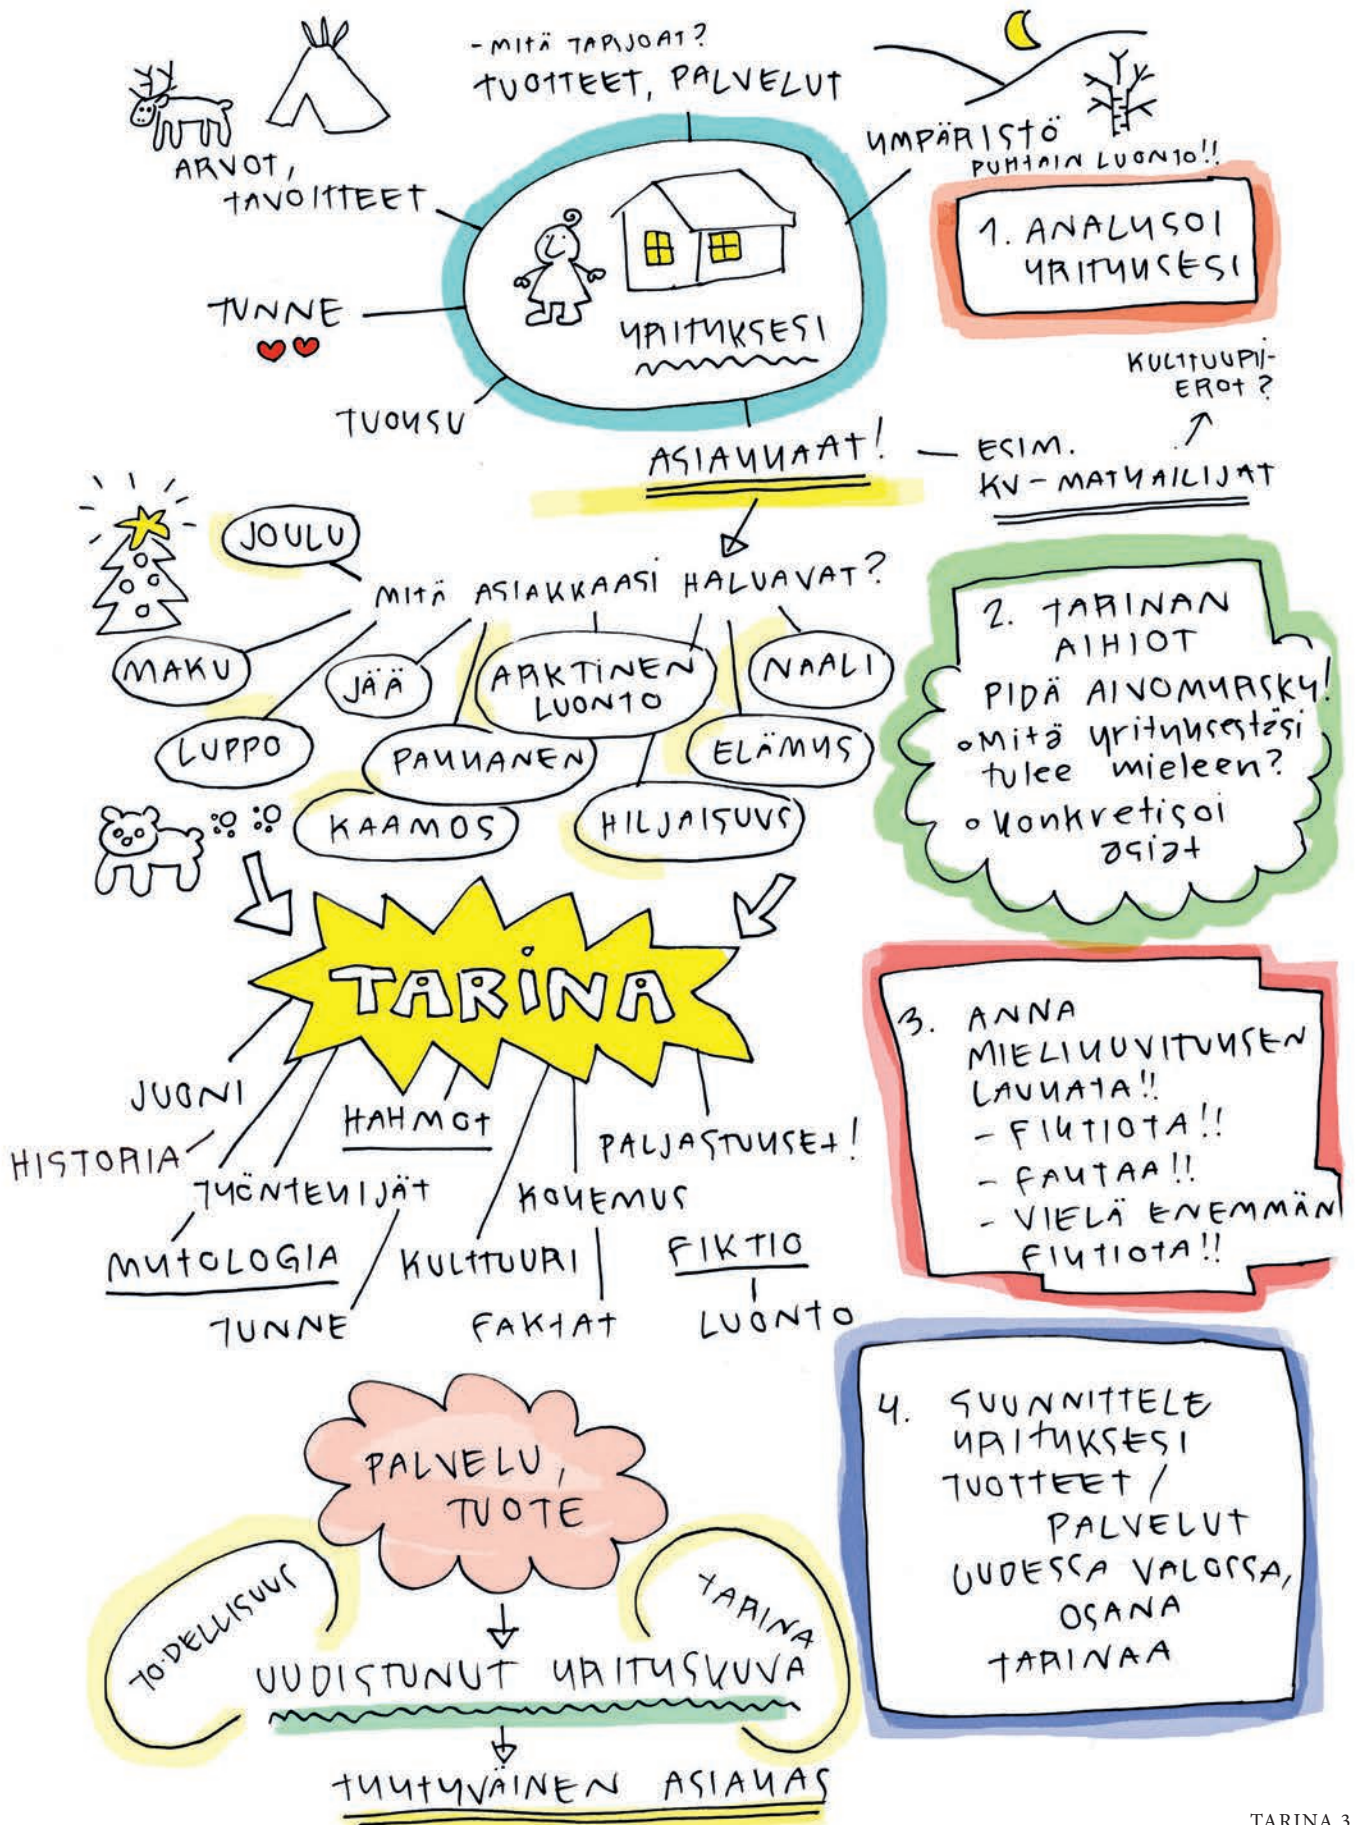 - MITÄ TARJOAT?
TUOTTEET, PALVELUT
ARVOT,
TAVOITTEET
YMPÄRISTÖ
PUHTAIN LUONTO!!
TUNNE
YRITYKSESI
TUOKSU
1. ANALYSOI
YRITYKSESI
KULTTUURI-
EROT?
ASIAKKAAT!
— ESIM.
KV-MATKAILIJAT
JOULU
MITÄ ASIAKKAASI HALUAVAT?
MAKU
JÄÄ
ARKTINEN
LUONTO
NAALI
LUPPO
PAKKANEN
ELÄMYS
KAAMOS
HILJAISUUS
2. TARINAN
AIHIOT
PIDÄ AIVOMYRSKY!
• Mitä yrityksestäsi
tulee mieleen?
• Konkretisoi
asiat
TARINA
JUONI
HISTORIA
HAHMOT
PALJASTUKSET!
TYÖNTEKIJÄT
KOKEMUS
MYTOLOGIA
KULTTUURI
FIKTIO
TUNNE
FAKTAT
LUONTO
3. ANNA
MIELIKUVITUKSEN
LAUKATA!!
- FIKTIOTA!!
- FAKTAA!!
- VIELÄ ENEMMÄN
FIKTIOTA!!
PALVELU,
TUOTE
TODELLISUUS
TARINA
UUDISTUNUT YRITYSKUVA
TYYTYVÄINEN ASIAKAS
4. SUUNNITTELE
YRITYKSESI
TUOTTEET /
PALVELUT
UUDESSA VALOSSA,
OSANA
TARINAA
TARINA 3